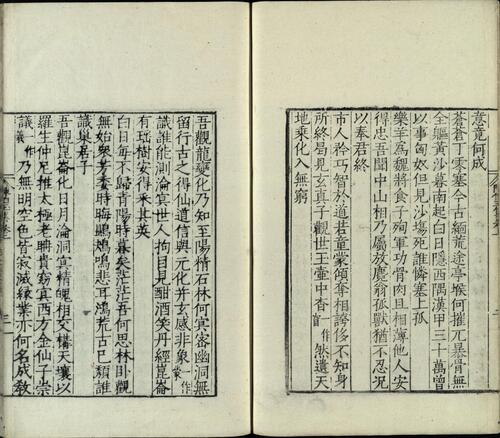 意竟何成
蒼蒼丁零塞今古緬荒途亭堠何摧兀暴骨無
全軀黃沙暮南起白日隱西隅漢甲三十萬曾
以事匈奴但見沙場死誰憐塞上孤
樂羊為魏將食子殉軍功骨肉且相薄他人安
得忠吾聞中山相乃屬放麑翁孤獸猶不忍況
以奉君終
市人矜巧智於道若童蒙傾奪相誇侈不知身
所終曷見玄真子觀世玉壺中杳一作然遺天
地乘化入無窮
吾觀龍變化乃知至陽精石林何冥密幽洞無
留行古之得仙道信與元化并玄感非象一作
識誰能測淪冥世人拘目見酣酒笑丹經崑崙
有瑤樹安得采其英
白日每不歸青陽時暮矣茫茫吾何思林臥觀
無始衆芳委時晦鶗鴂鳴悲耳鴻荒古已頹誰
識巢居子
吾觀崑崙化日月淪洞冥精魄相交構天壤以
羅生仲尼推太極老聃貴窈冥西方金仙子崇
議一作義乃無明空色皆寂滅緣業亦何名成教